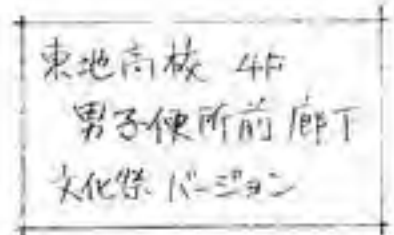 東地高校 4F
男子便所前廊下
文化祭バージョン